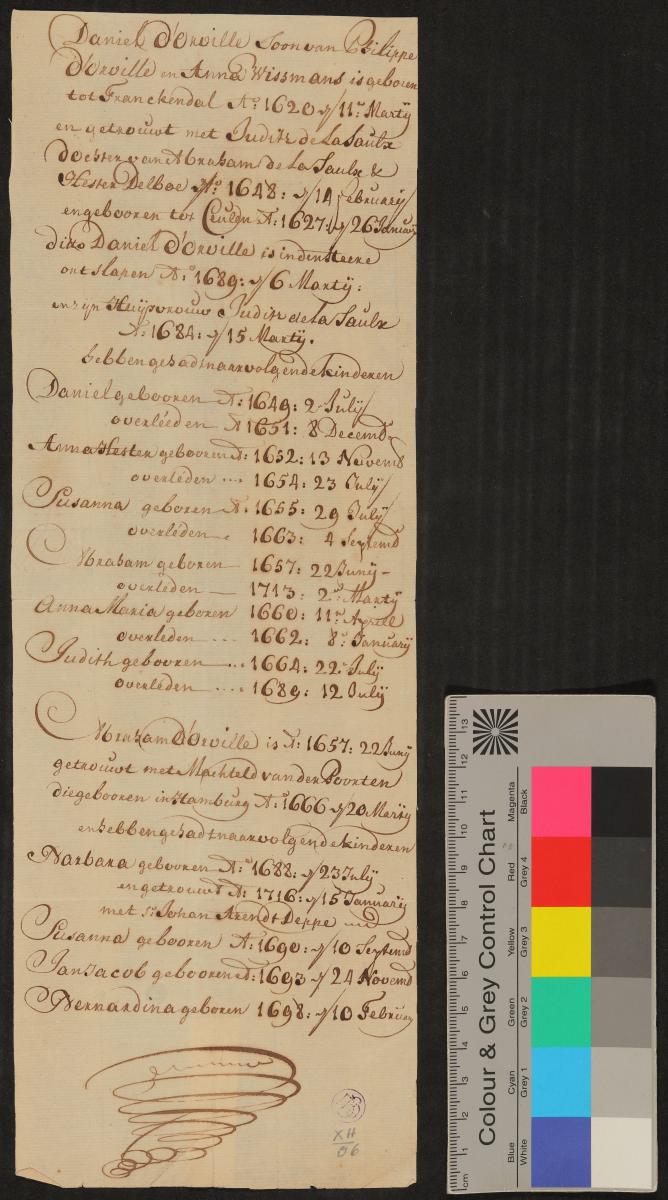 Daniel d'Orville Soon van Philippe
d'Orville en Anna Wissmans is geboren
tot Franckendal Aº 1620 11n Martÿ
en getrouwt met Judith de La Saulx
dochter van Abraham de La Saulx &
Hester Delboe Aº 1648: 14 februarÿ
engebooren tot Ceulen Aº: 1627: 26 Januarÿ
dito Daniel d'Orville is in den Heere
ontslapen Aº: 1689: 6 Martÿ:
en zijn Huÿsvrouw Judith de La Saulx
Aº: 1684: 15 Martÿ.
hebben gehadt naarvolgende kinderen
Daniel gebooren A: 1649: 2 Julÿ
overléeden A 1651: 8 Decemb
Anna Hester gebooren A: 1652: 13 Novemb
overléden ... 1654: 23 Julÿ
Susanna geboren A: 1655: 29 Julÿ
overleden 1663: 4 Septemb
Abraham geboren 1657: 22 Junÿ
overleden 1713: 2n Martÿ
Anna Maria geboren 1660: 11n April
overleden ... 1662: 8n Januarÿ
Judith gebooren ... 1664: 22n Julÿ
overleden .... 1689: 12 Julÿ
Abraham d'Orville is A: 1657: 22 Junÿ
getrouwt met Machteld van der Poorten
die gebooren in Hamburg Aº 1666 20 Martÿ
en hebben gehadt naarvolgende kinderen
Barbara gebooren Aº: 1688: 23 Julÿ
en getrouwt Aº: 1716: 15 Januarÿ
met Sr Johan Arendt Deppe
Susanna gebooren Aº: 1690: 10 Septemb
Jan Jacob gebooren A: 1693 24 Novemb
Bernardina geboren 1698: 10 Februarÿ
XH
06
Colour & Grey Control Chart
Blue Cyan Green Yellow Red Magenta
White Grey 1 Grey 2 Grey 3 Grey 4 Black
cm 1 2 3 4 5 6 7 8 9 10 11 12 13